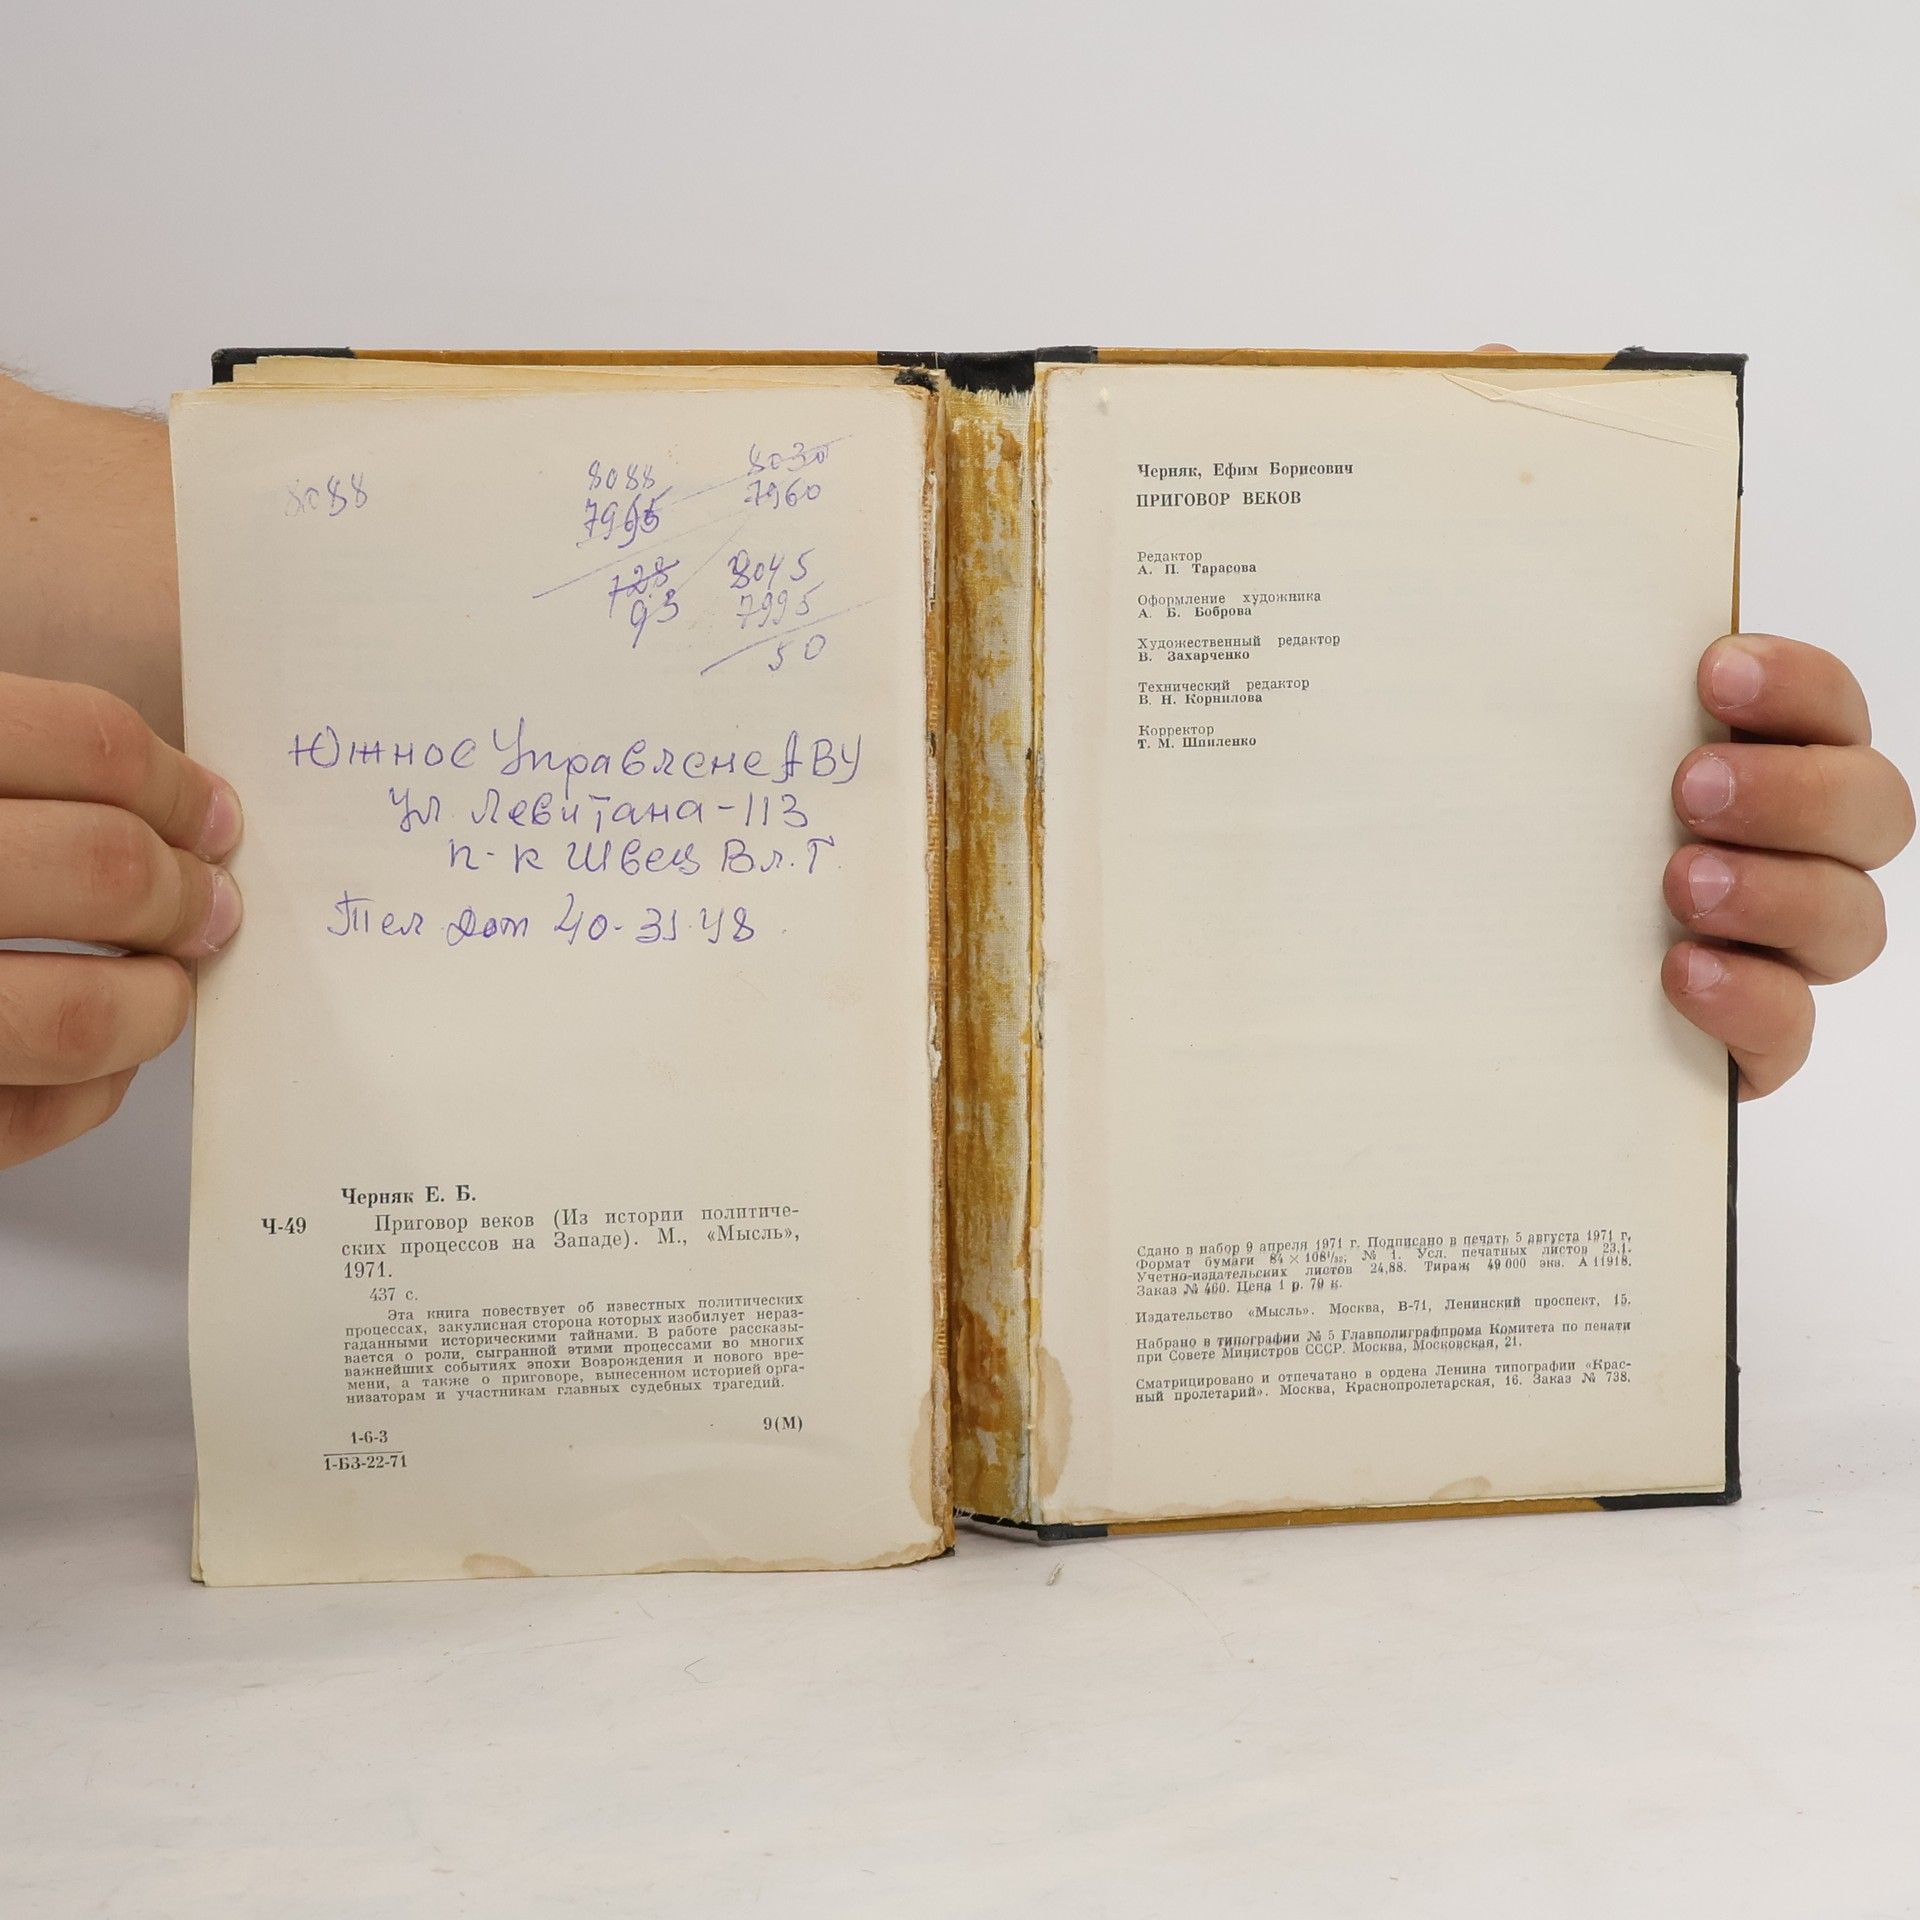 8088
8088
7995
93
8030
7960
8045
7995
50
Южное Управлене АВУ
ул. Левитана-113
п-к Швец Вл. Г.
Тел дом 40-31-48
Черняк Е. Б.
Ч-49
Приговор веков (Из истории политиче-
ских процессов на Западе). М., «Мысль»,
1971.
437 с.
Эта книга повествует об известных политических
процессах, закулисная сторона которых изобилует нераз-
гаданными историческими тайнами. В работе рассказы-
вается о роли, сыгранной этими процессами во многих
важнейших событиях эпохи Возрождения и нового вре-
мени, а также о приговоре, вынесенном историей орга-
низаторам и участникам главных судебных трагедий.
1-6-3
1-БЗ-22-71
9(М)
Черняк, Ефим Борисович
ПРИГОВОР ВЕКОВ
Редактор
А. П. Тарасова
Оформление художника
А. Б. Боброва
Художественный редактор
В. Захарченко
Технический редактор
В. Н. Корнилова
Корректор
Т. М. Шпиленко
Сдано в набор 9 апреля 1971 г. Подписано в печать 5 августа 1971 г.
Формат бумаги 84×108¹/₃₂, № 1. Усл. печатных листов 23,1.
Учетно-издательских листов 24,88. Тираж 49 000 экз. А 11918.
Заказ № 460. Цена 1 р. 79 к.
Издательство «Мысль». Москва, В-71, Ленинский проспект, 15.
Набрано в типографии № 5 Главполиграфпрома Комитета по печати
при Совете Министров СССР. Москва, Московская, 21.
Сматрицировано и отпечатано в ордена Ленина типографии «Крас-
ный пролетарий». Москва, Краснопролетарская, 16. Заказ № 738.